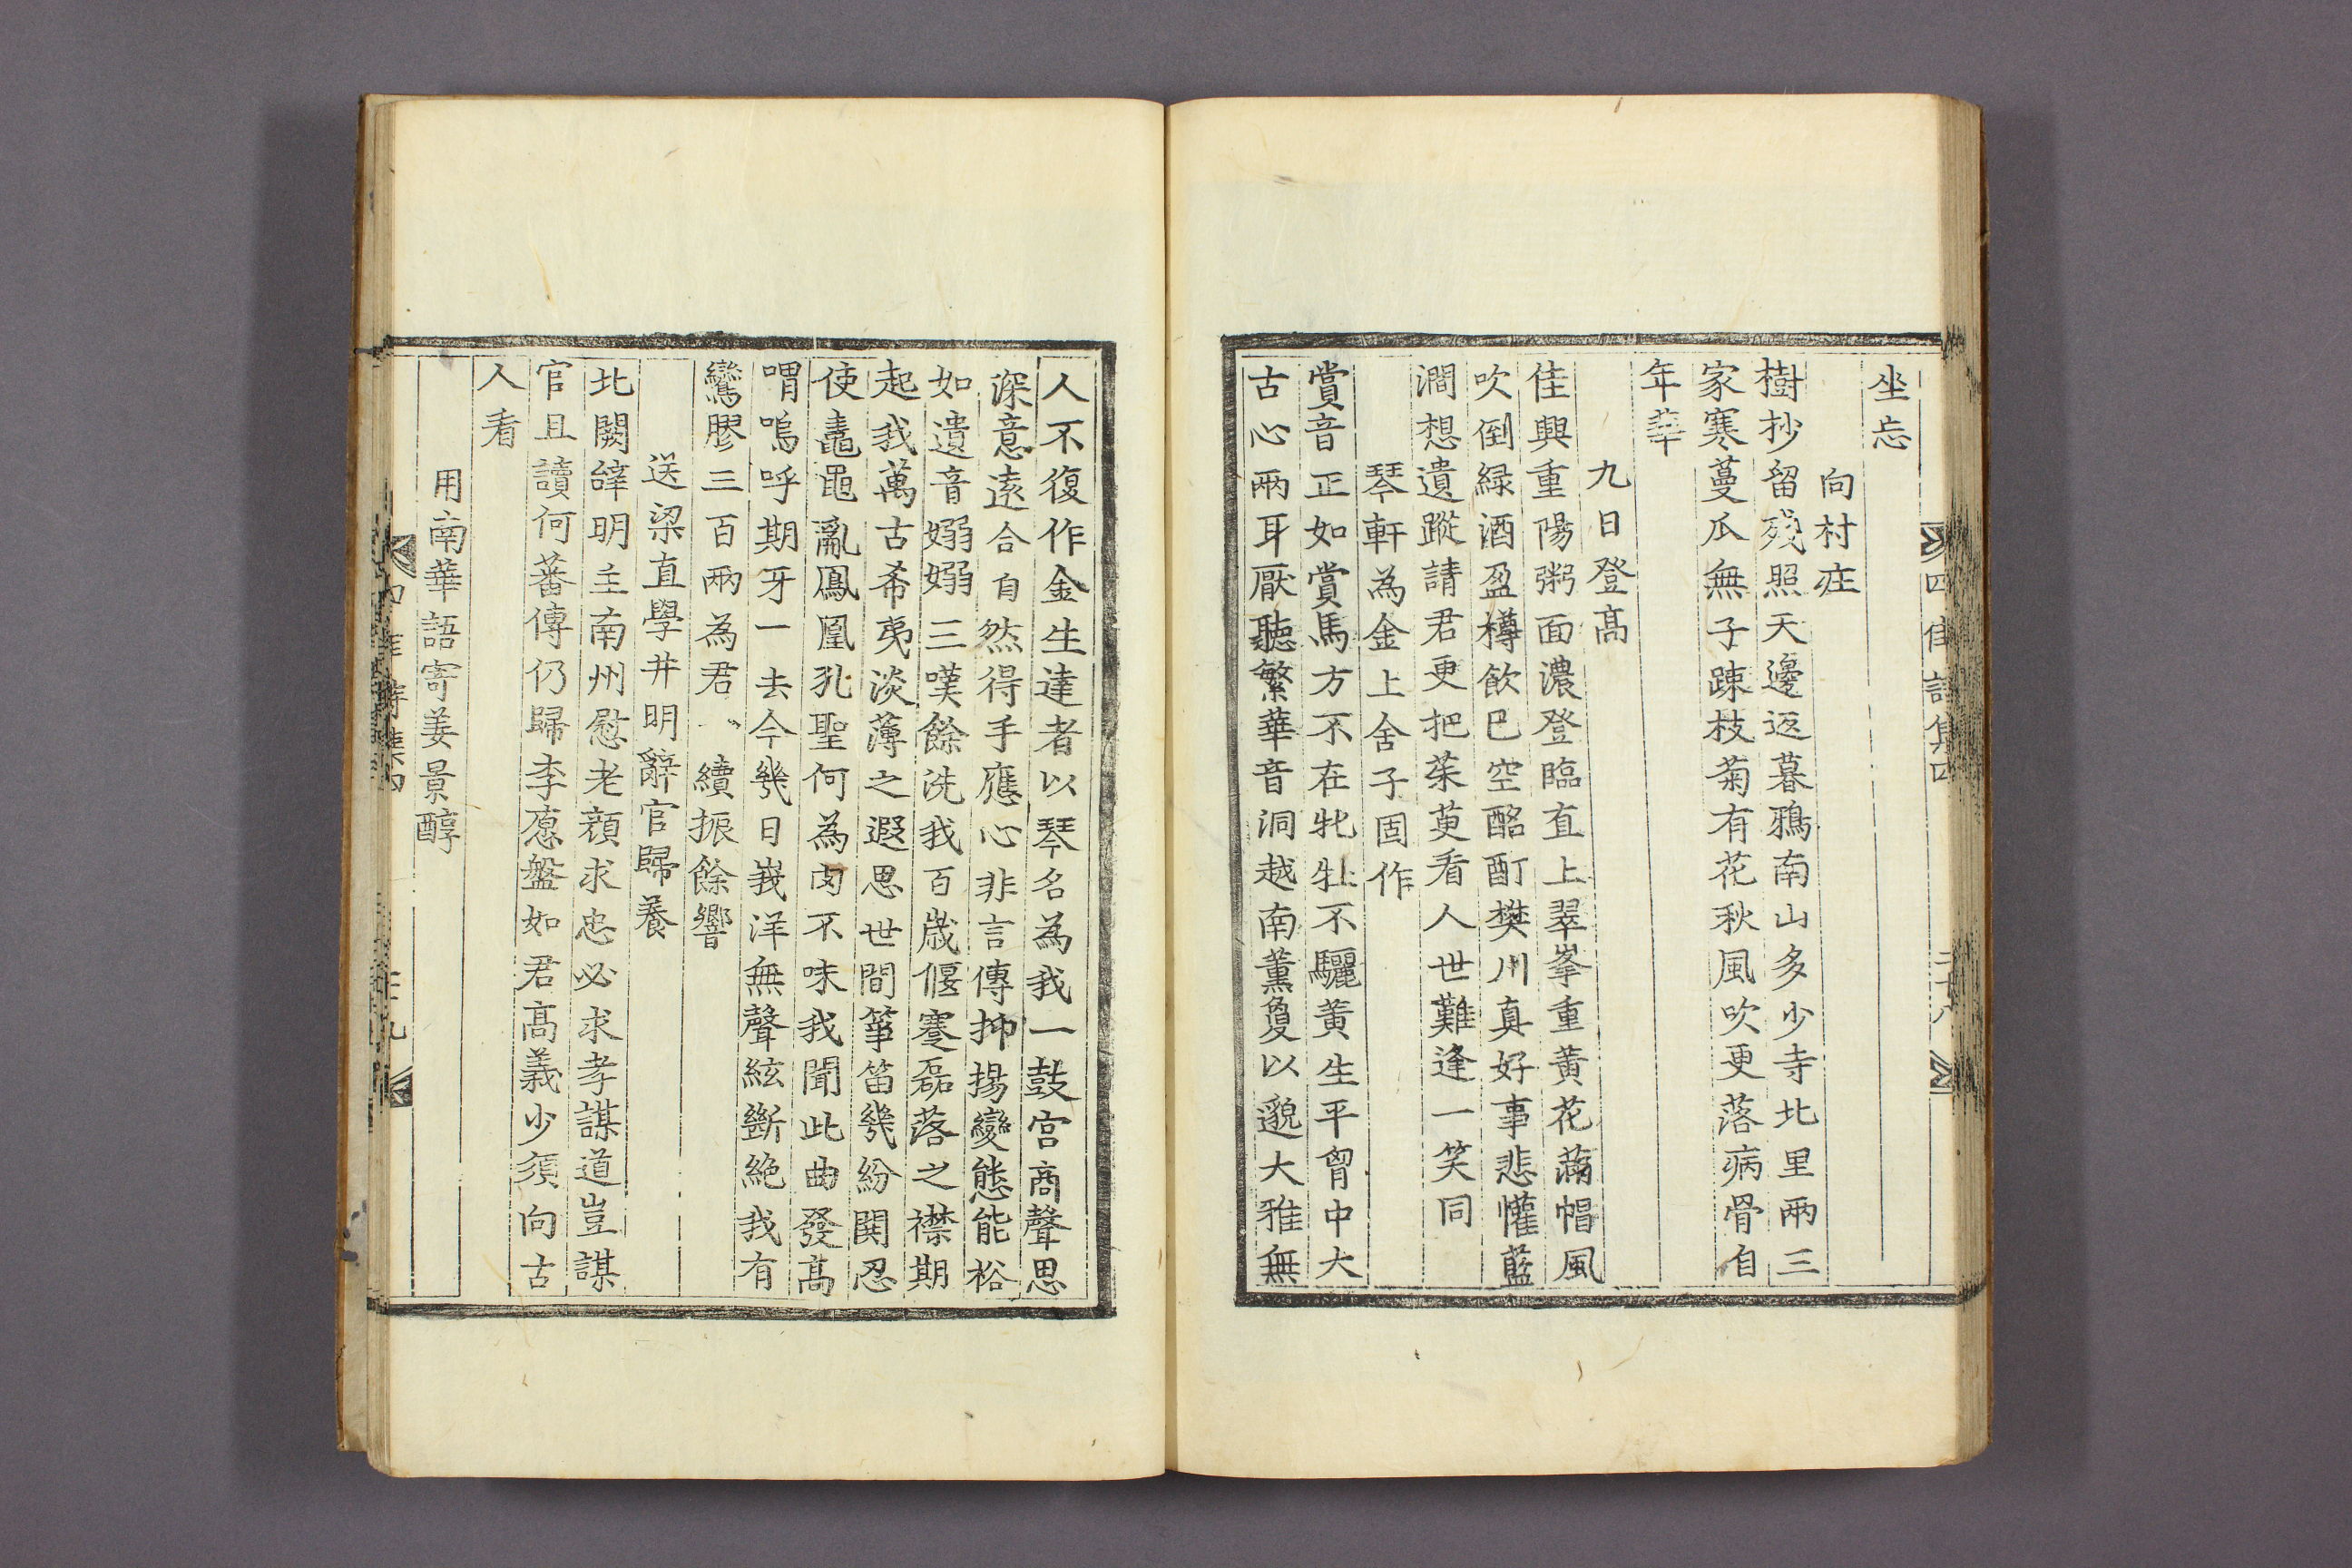 坐忘
向村庄
樹抄留殘照天邊返暮鴉南山多少寺北里兩三
家寒蔓瓜無子踈枝菊有花秋風吹更落病骨自
年華
九日登高
佳興重陽粥面濃登臨直上翠峯重黃花滿帽風
吹倒綠酒盈樽飲已空酩酊樊川真好事悲懽藍
澗想遺蹤請君更把茱萸看人世難逢一笑同
琴軒為金上舍子固作
賞音正如賞馬方不在牝牡不驪黃生平胷中大
古心兩耳厭聽繁華音洞越南薰敻以邈大雅無
人不復作金生達者以琴名為我一鼓宮商聲思
深意遠合自然得手應心非言傳抑揚變態能裕
如遺音嫋嫋三嘆餘洗我百歲偃蹇磊落之襟期
起我萬古希夷淡薄之遐思世間箏笛幾紛鬨忍
使鼃黽亂鳳凰孔聖何為肉不味我聞此曲發高
喟嗚呼期牙一去今幾日峩洋無聲絃斷絶我有
鸞膠三百兩為君續振餘響
送梁直學井明辭官歸養
北闕辭明主南州慰老顏求忠必求孝謀道豈謀
官且讀何蕃傳仍歸李愿盤如君高義少須向古
人看
用南華語寄姜景醇
四佳詩集四